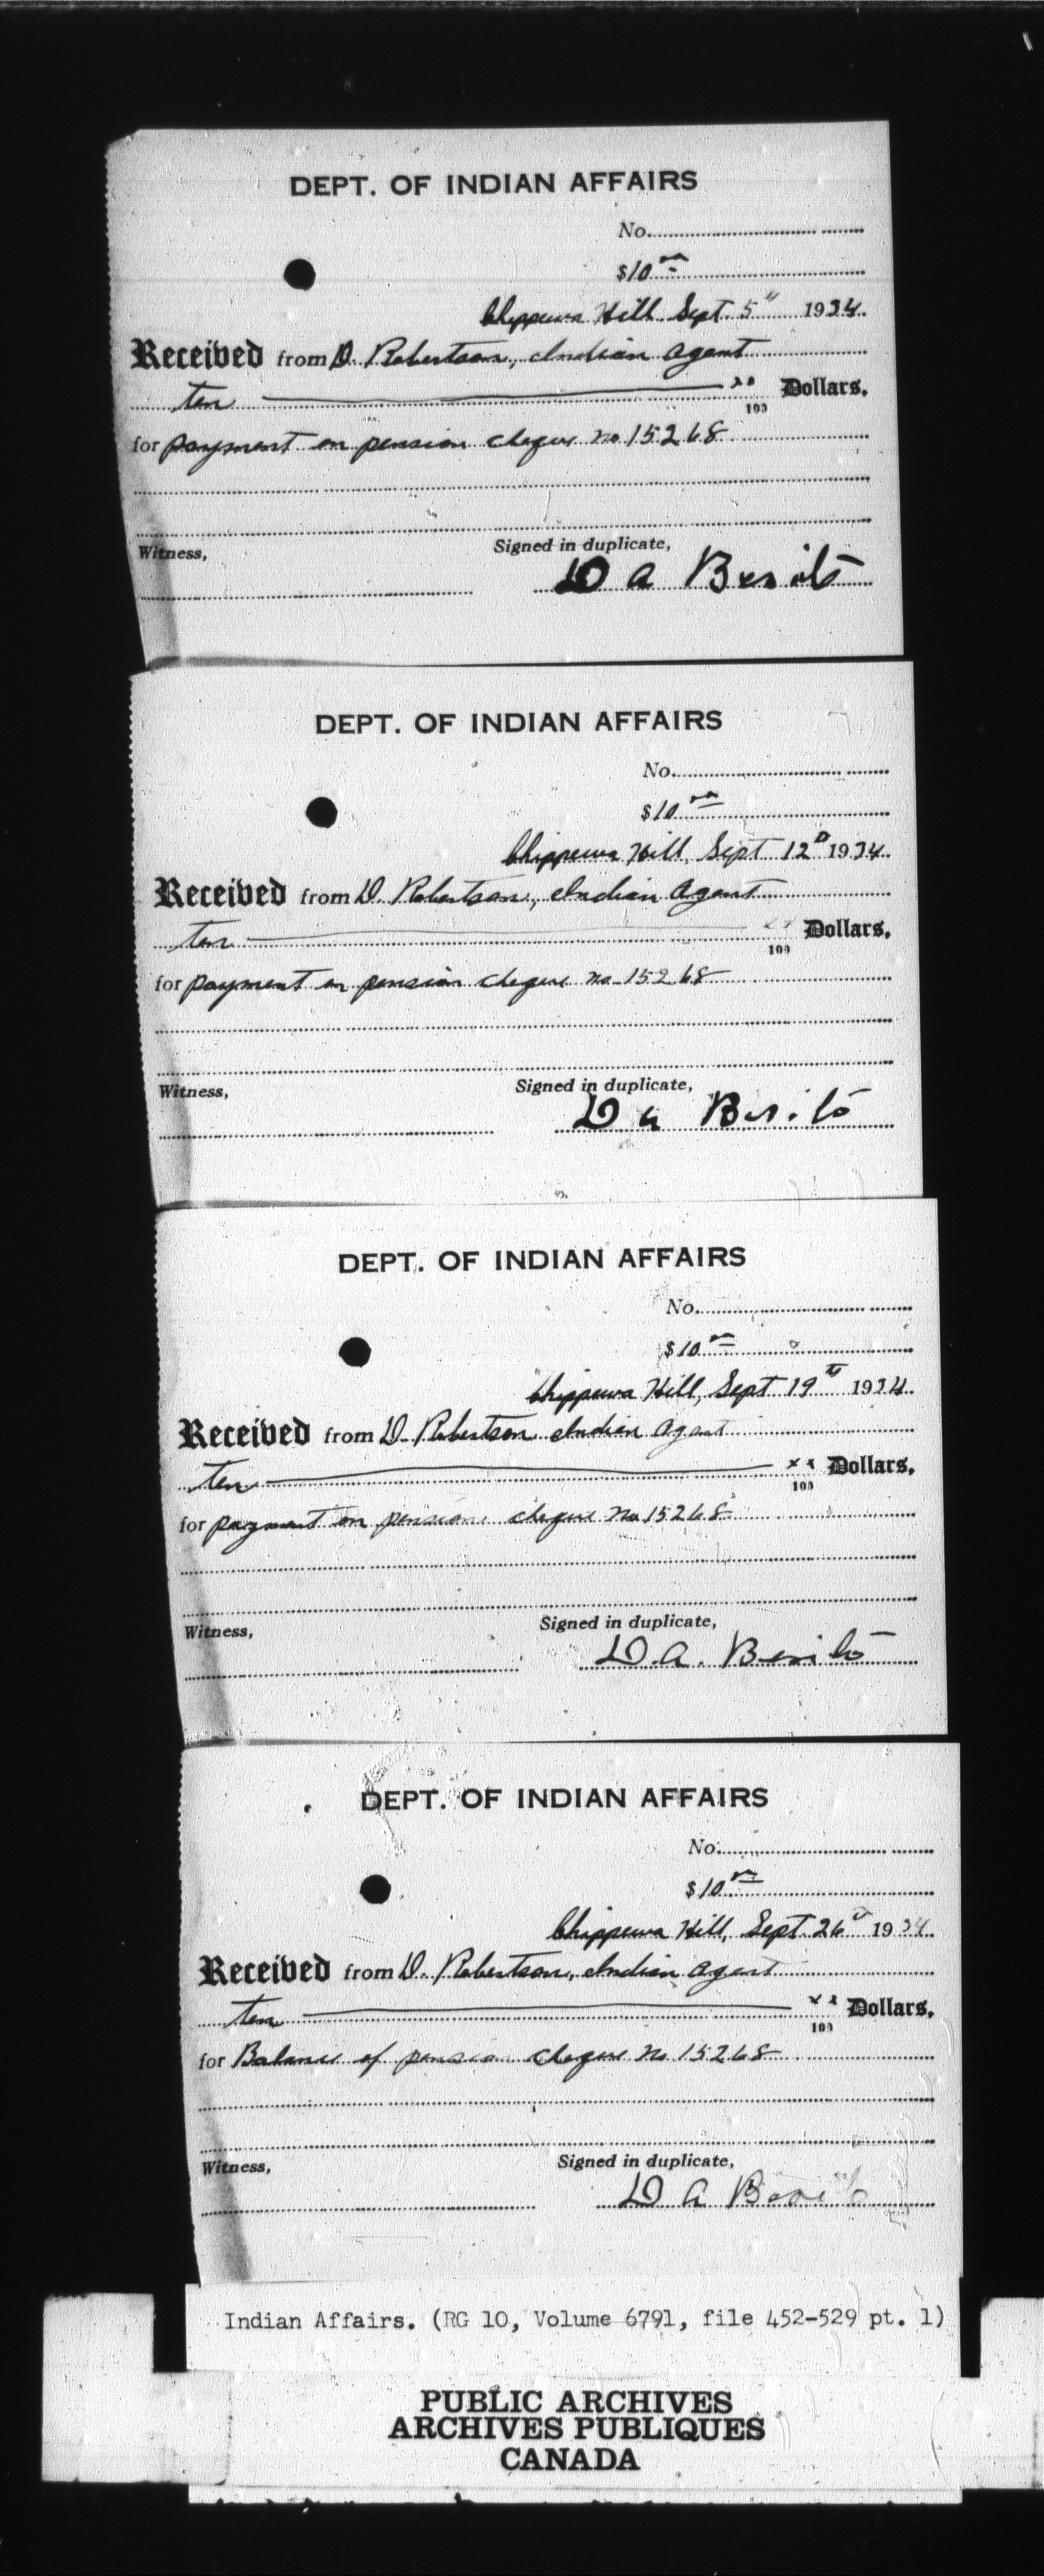 DEPT. OF INDIAN AFFAIRS
No.
$10 00
Chippewa Hill Sept. 5" 1934.
Received from D. Robertson, Indian Agent
ten xx/100 Dollars,
for payment on pension cheque no. 15268
Witness,
Signed in duplicate,
D A
DEPT. OF INDIAN AFFAIRS
No.
$10 00
Chippewa Hill, Sept 12 1934.
Received from D. Robertson, Indian Agent
ten xx/100 Dollars,
for payment on pension cheque no. 15268
Witness,
Signed in duplicate,
D a
DEPT. OF INDIAN AFFAIRS
No.
$10 00
Chippewa Hill, Sept 19th 1934.
Received from D. Robertson Indian Agent
ten xx/100 Dollars,
for payment on pension cheque no 15268
Witness,
Signed in duplicate,
D. A.
DEPT. OF INDIAN AFFAIRS
No.
$10 00
Chippewa Hill, Sept. 26 1934.
Received from D. Robertson, Indian Agent
ten xx/100 Dollars,
for Balance of pension cheque no 15268
Witness,
Signed in duplicate,
D A
Indian Affairs. (RG 10, Volume 6791, file 452-529 pt. 1)
PUBLIC ARCHIVES
ARCHIVES PUBLIQUES
CANADA